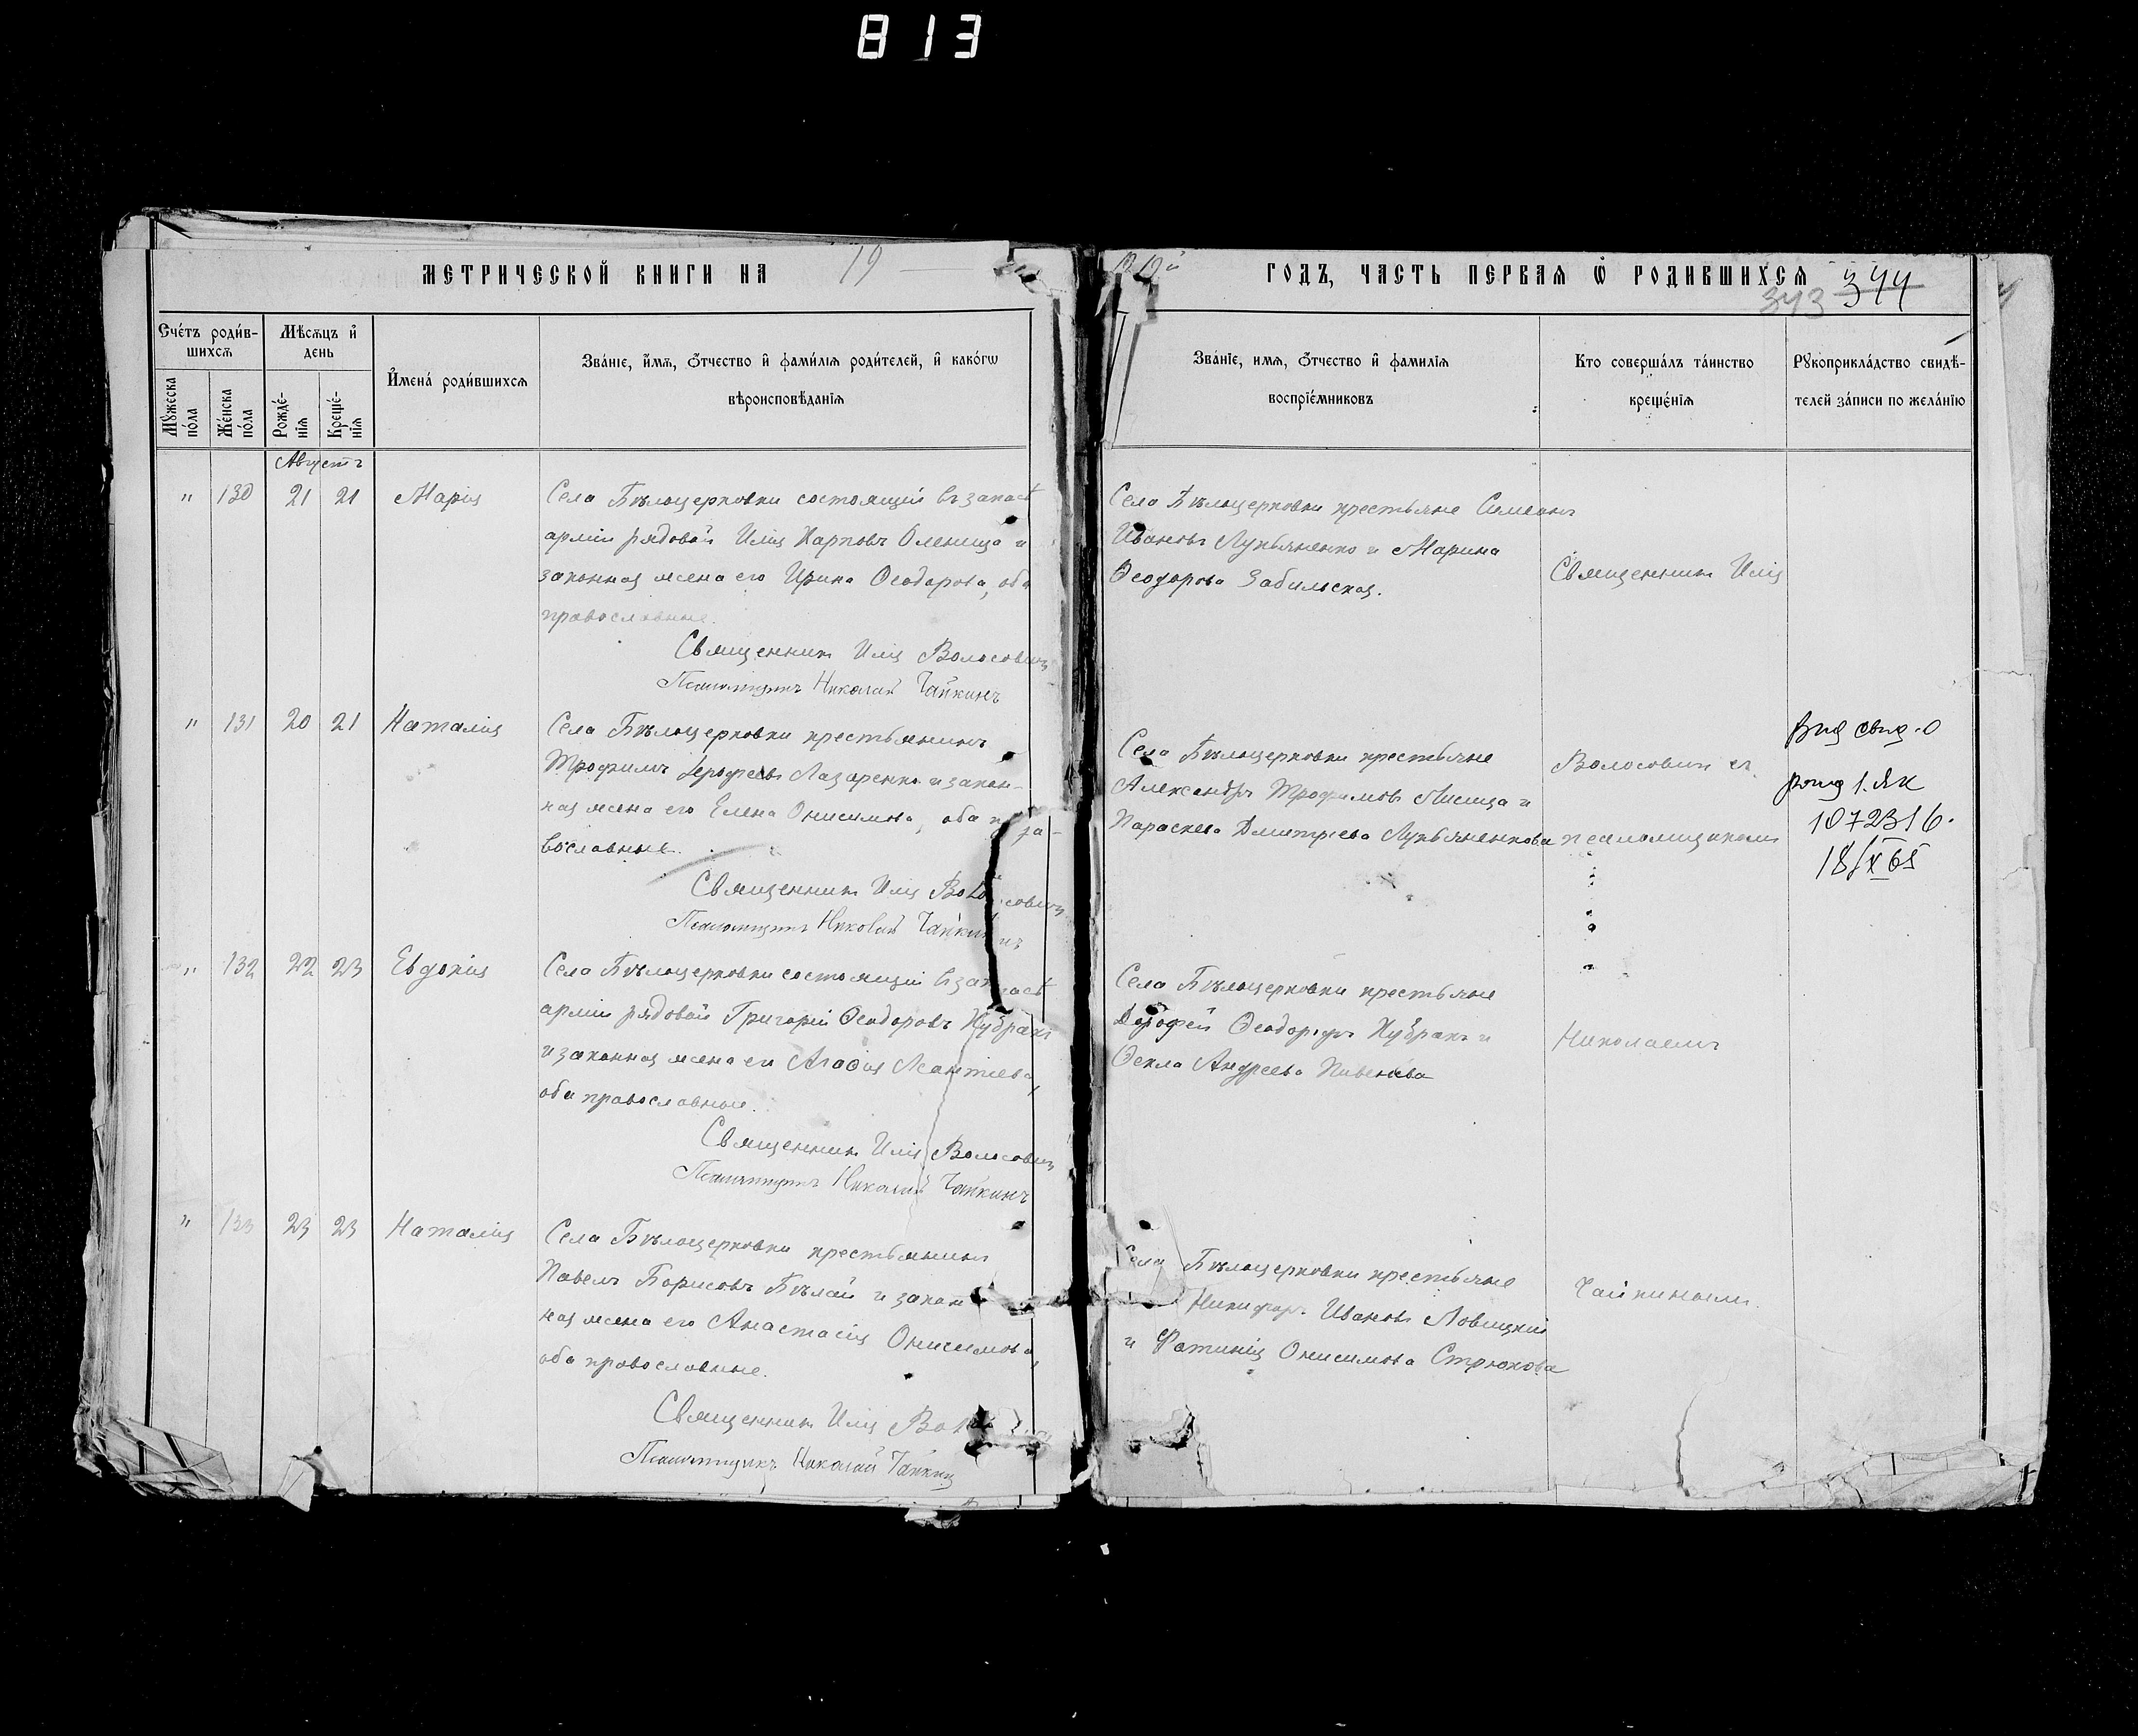 813
МЕТРИЧЕСКОЙ КНИГИ НА 19
ГОДЪ, ЧАСТЬ ПЕРВАЯ Ѡ РОДИВШИХСЯ 344
343
Сче́тъ роди́в-
шихсѧ
Мѣ́сѧцъ и҆
день
Мꙋжеска по́ла
Же́нска по́ла
Рожде́-нїѧ
Креще́-нїѧ
И҆мена̀ роди́вшихсѧ
Зва́нїе, и҆́мѧ, ѻ҆́тчество и҆ фами́лїѧ роди́телей, и҆ како́гѡ
вѣроисповѣ́данїѧ
Зва́нїе, имѧ, ѻ҆́тчество и҆ фамилїѧ
воспрїе́мниковъ
Кто соверша́лъ та́инство
креще́нїѧ
Рꙋкоприкла́дство свидѣ́-
телей за́писи по жела́нїю
Августъ
" 130 21 21 Марія
Села Бѣлоцерковки состоящій въ запасѣ
арміи рядовой Илія Карповъ Оленица и
законная жена его Ирина Ѳеодорова, оба
православные.
Священникъ Илія Волосовичъ
Псаломщикъ Николай Чайкинъ
Села Бѣлоцерковки крестьяне Симеонъ
Ивановъ Лукьяненко и Марина
Ѳеодорова Забильская.
Священникъ Илія
" 131 20 21 Наталія
Села Бѣлоцерковки крестьянинъ
Трофимъ Іерофеевъ Лазаренко и закон-
ная жена его Елена Онисимова, оба
вославные.
Священникъ Илія Волосовичъ
Псаломщикъ Николай Чайкинъ
Села Бѣлоцерковки крестьяне
Александръ Трофимовъ Лисица и
Параскева Димитріева Лукьяненкова
Волосовичъ съ
псаломщикомъ
Вид свид. о
рожд 1. ЯК
1072316.
18/IX 65
" 132 22 23 Евдокія
Села Бѣлоцерковки состоящій въ запасѣ
арміи рядовой Григорій Ѳеодоровъ Кубракъ
и законная жена его Агафія Леонтіева,
оба православные.
Священникъ Илія Волосовичъ
Псаломщикъ Николай Чайкинъ
Села Бѣлоцерковки крестьяне
Дорофей Ѳеодоровъ Кубракъ и
Ѳекла Андреева Пивенева
Николаемъ
" 133 23 23 Наталія
Села Бѣлоцерковки крестьянинъ
Павелъ Борисовъ Бѣлай и закон
ная жена его Анастасія Онисимова,
оба православные.
Священникъ Илія
Псаломщикъ Николай Чайкин
Села Бѣлоцерковки крестьяне
Никифоръ Ивановъ Ловицкій
и Фотинія Онисимова Стрюкова
Чайкинымъ.